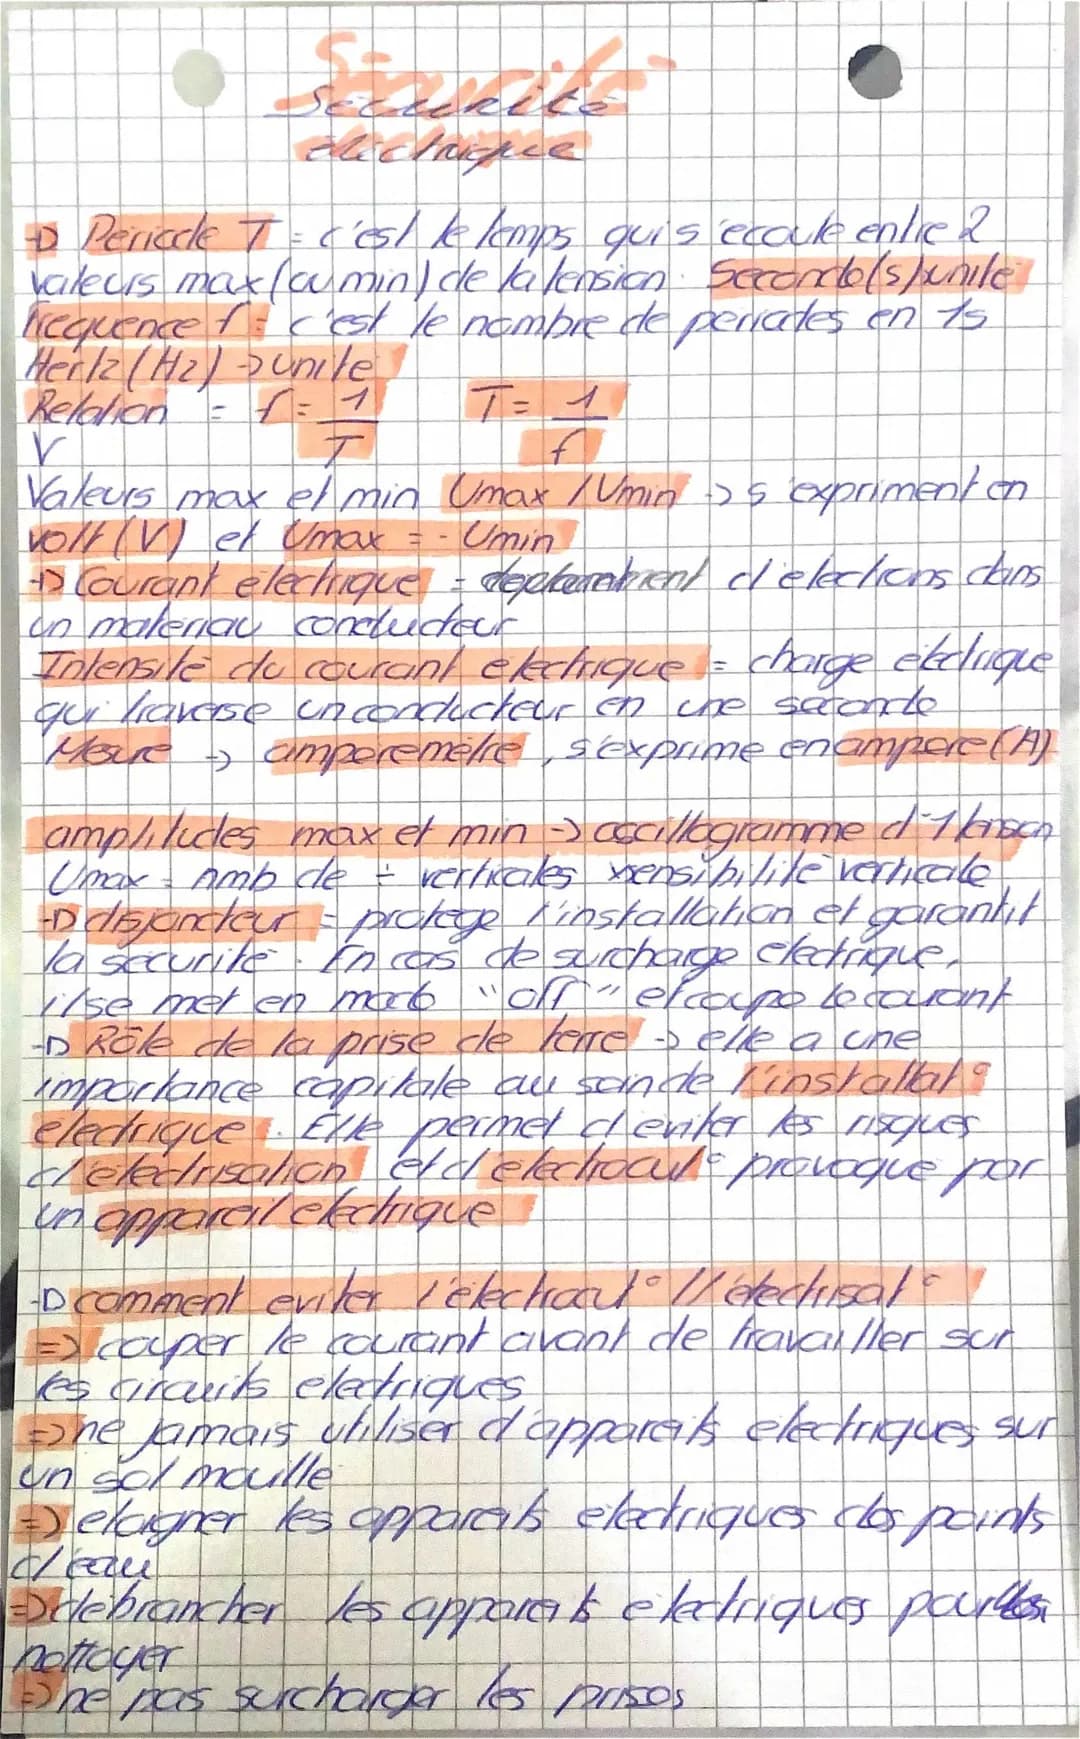 Sécurité
électrique
→ Période T = c'est le temps qui s'écoule entre 2
valeurs max (ou min) de la tension. Seconde (s) unité
Frequence f = c'est le nombre de periodes en 1s
Hertz (Hz) → unité
Relation = f = 1/T T = 1/f
V
Valeurs max et min Umax / Umin → s'expriment en
volt (V) et Umax = - Umin
→ Courant électrique = deplacement d'electrons dans
un materiau conducteur
Intensité du courant electrique = charge électrique
qui traverse un conducteur en une seconde
Mesure → amperemètre, s'exprime en ampere (A)
amplitudes max et min → oscillogramme d'1 tension
Umax = nmb de ÷ verticales x sensibilité verticale
→ disjoncteur = protege l'installation et garantit
la sécurité. En cas de surcharge electrique,
il se met en mode "off" et coupe le courant
→ Rôle de la prise de terre → elle a une
importance capitale au sein de l'installat°
electrique. Elle permet d'eviter les risques
d'électrisation et d'electrocut° provoque par
un appareil electrique
→ comment eviter l'électrocut° // électrisat°
=> couper le courant avant de travailler sur
les circuits electriques
=> ne jamais utiliser d'appareils electriques sur
un sol mouille
=> eloigner les appareils electriques des points
d'eau
=> debrancher les appareils electriques pour les
nettoyer
=> ne pas surcharger les prises